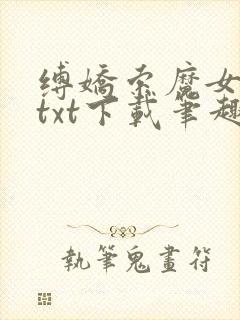 缚娇索魔女
txt下载笔趣
执筆鬼畫符